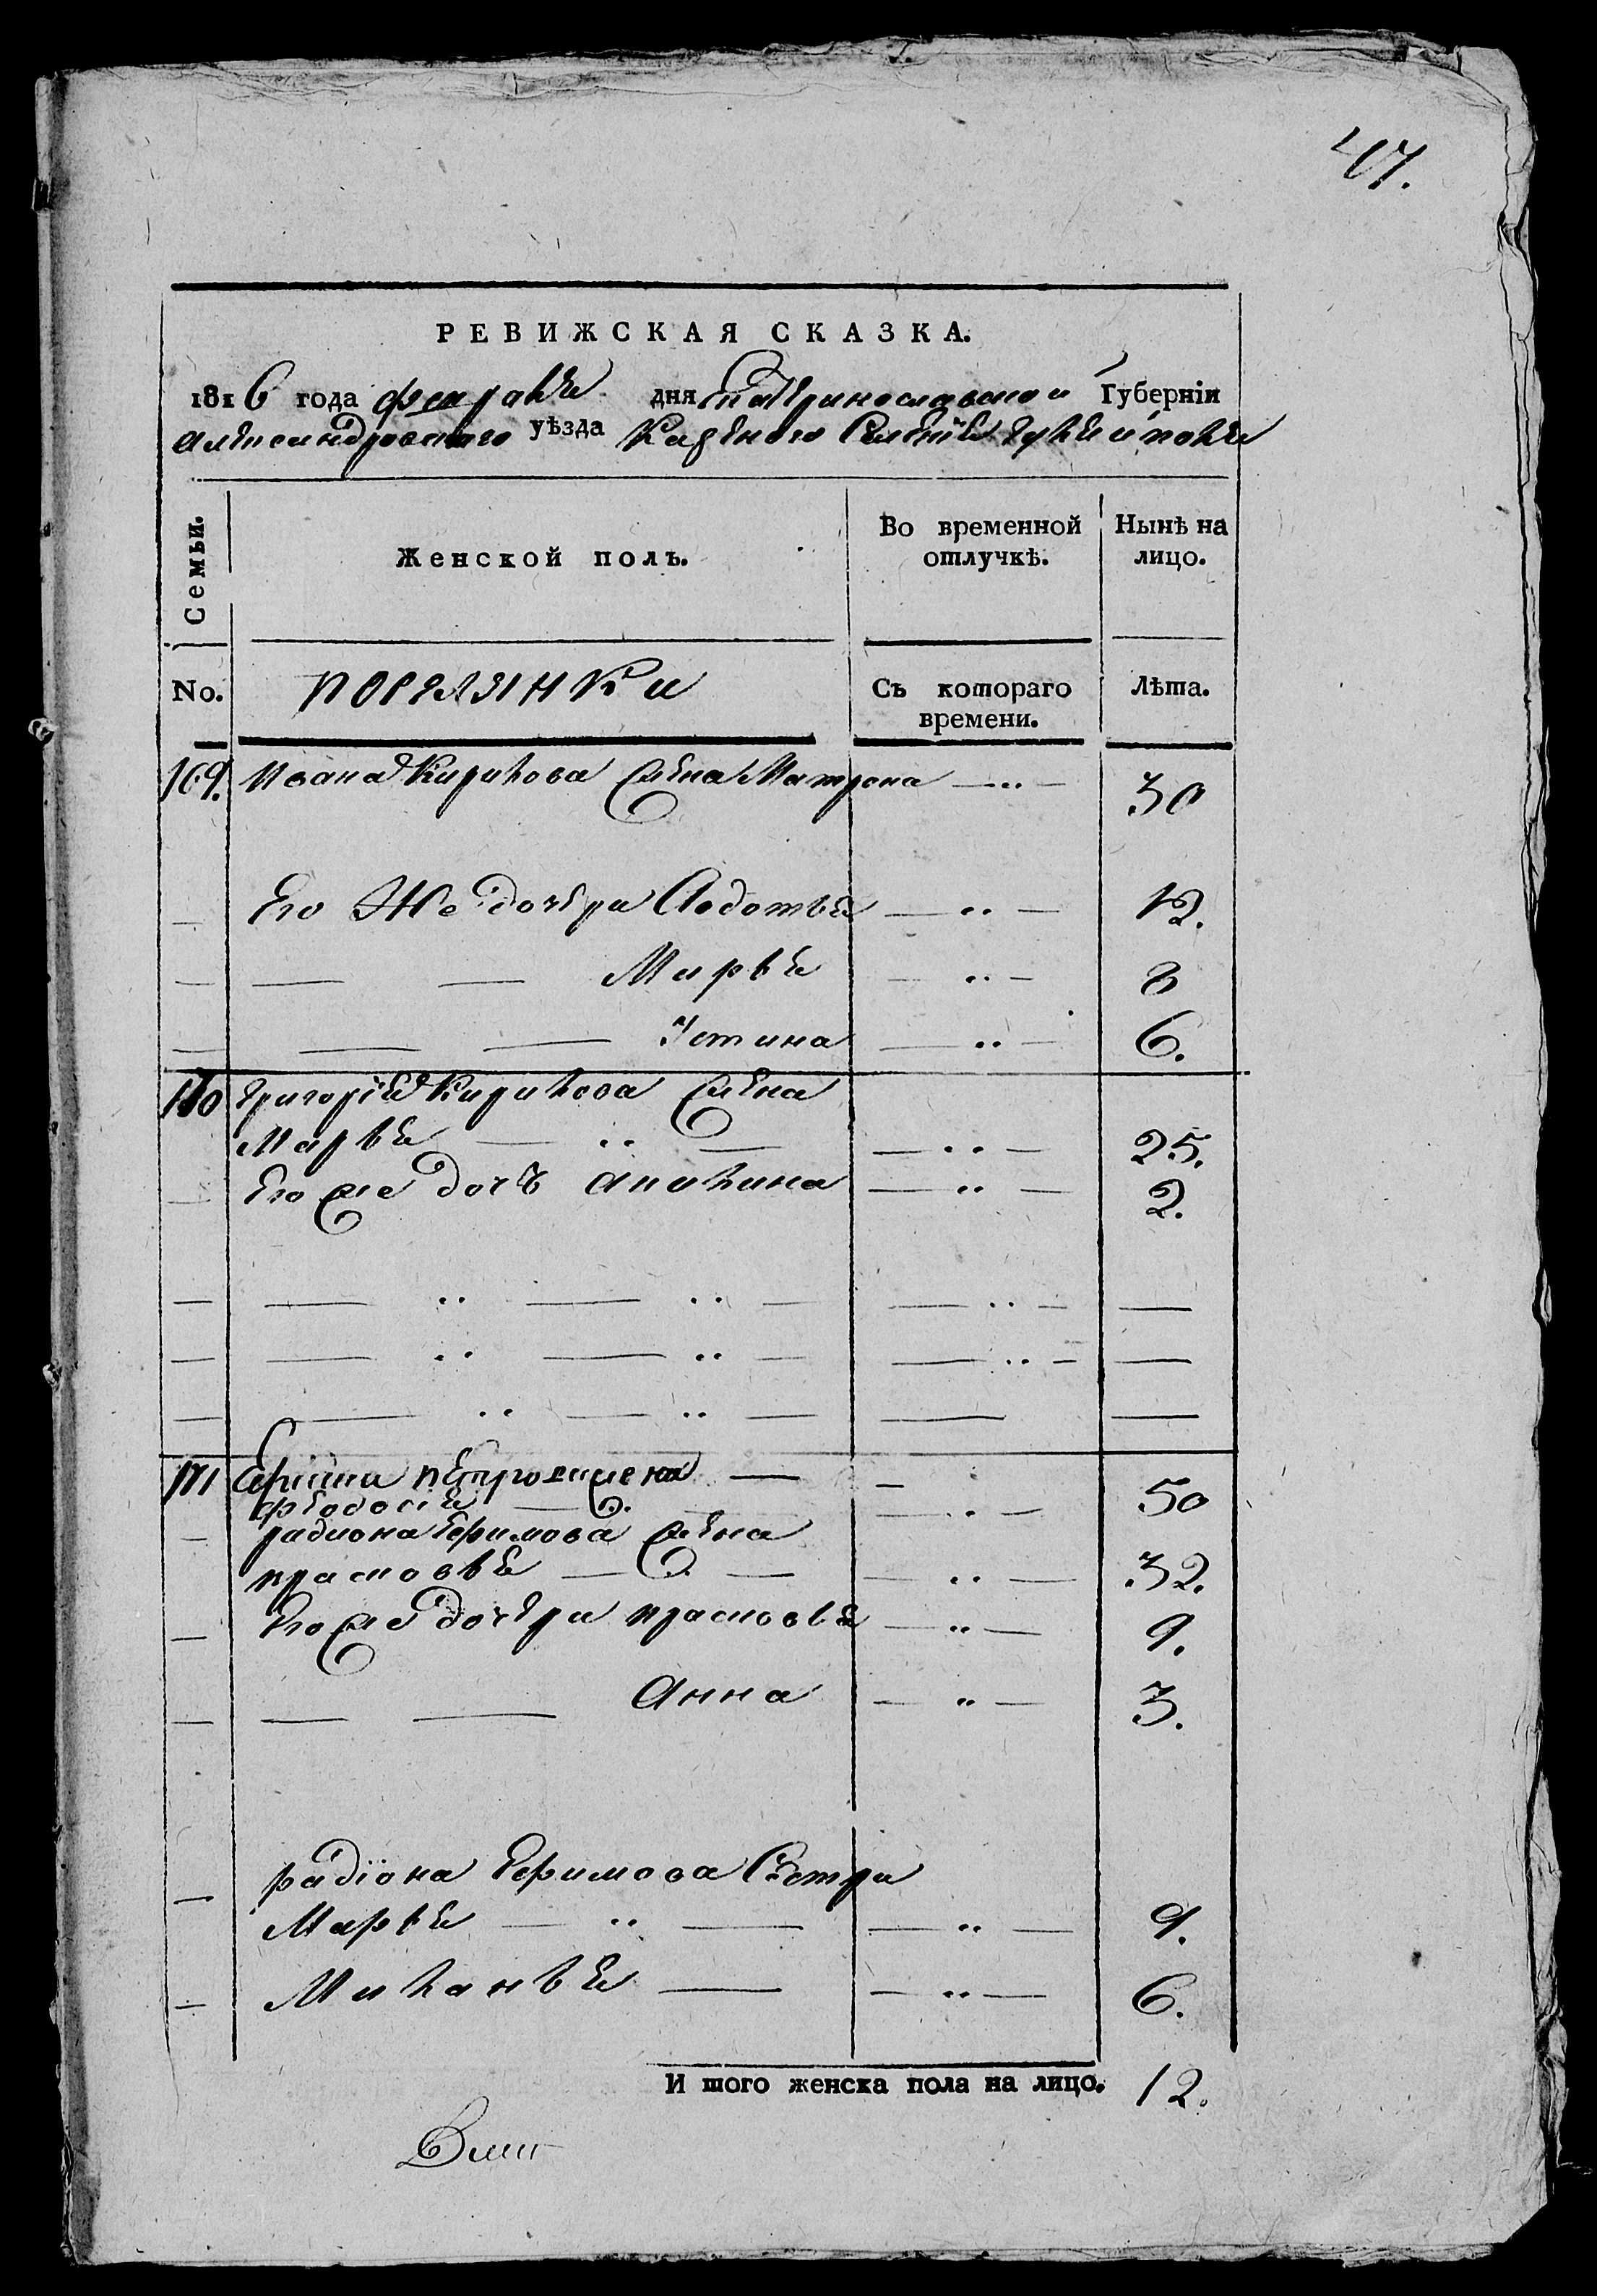 47.
РЕВИЖСКАЯ СКАЗКА.
1816 года февраля дня Екатеринославской Губерніи
александровского уѣзда Казенного Селенія гуляйполя
Семьи.
Женской полъ.
Во временной отлучкѣ.
Нынѣ на лицо.
No.
поселянки
Съ котораго времени.
Лѣта.
169. Ивана Кирилова жена Матрона — .. — 30
— Его Же дочери Авдотья — .. — 12.
— — — Марья — .. — 8
— — — Устина — .. — 6.
170 григорія Кирилова жена
Марья — .. — — .. — 25.
— Его же дочь акилина — .. — 2.
— — .. — .. — — .. — —
— — .. — .. — — .. — —
— — .. — .. — — —
171 Ефима петрова жена —
феодосія — — .. — 50
— радиона Ефимова жена
прасковья — — — .. — 32.
— Его же дочери прасковья — .. — 9.
— — — анна — .. — 3.
— радіона Ефимова Сестри
Марья — .. — — .. — 9.
— Миланья — — .. — 6.
И того женска пола на лицо. 12.